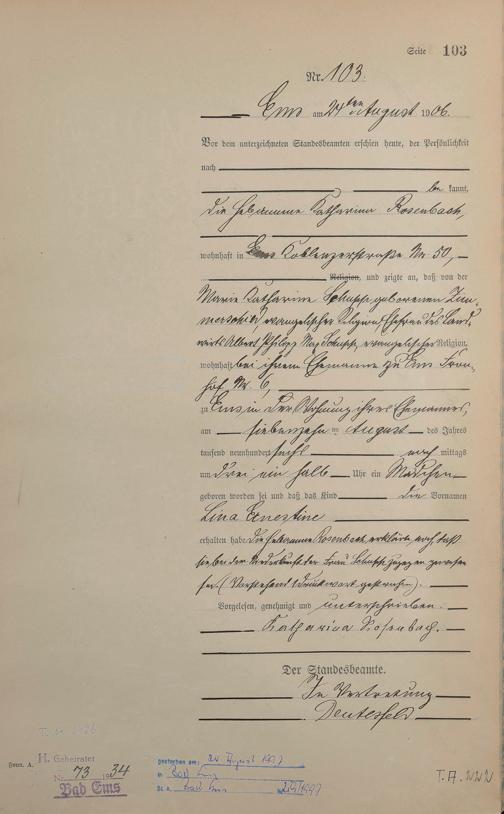 Seite 103
Nr. 103.
Ems am 24ten August 1906.
Vor dem unterzeichneten Standesbeamten erschien heute, der Persönlichkeit
nach
be kannt,
die Hebamme Katharina Rosenbach,
wohnhaft in Ems Koblenzerstraße Nr 50,
Religion, und zeigte an, daß von der
Marie Katharine geborenen
evangelischer Religion Ehefrau des
Albert Philipp evangelischer Religion,
wohnhaft bei ihrem Ehemanne zu Ems
hof Nr. 6,
zu Ems in der Wohnung ihres Ehemannes,
am siebenzehn ten August des Jahres
tausend neunhundert sechs nach mittags
um drei ein halb Uhr ein Mädchen
geboren worden sei und daß das Kind die Vornamen
Lina Ernestine
erhalten habe. Die Hebamme Rosenbach erklärte, noch daß
sie bei der Niederkunft der Frau zugegen gewesen
sei. (Vorstehend 1 Druckwort gestrichen).
Vorgelesen, genehmigt und unterschrieben.
Katharina Rosenbach.
Der Standesbeamte.
In Vertretung
H. Geheiratet
Nr. 73 1934
Bad Ems
gestorben am: August 1997
in Bad Ems
St. A. Bad Ems